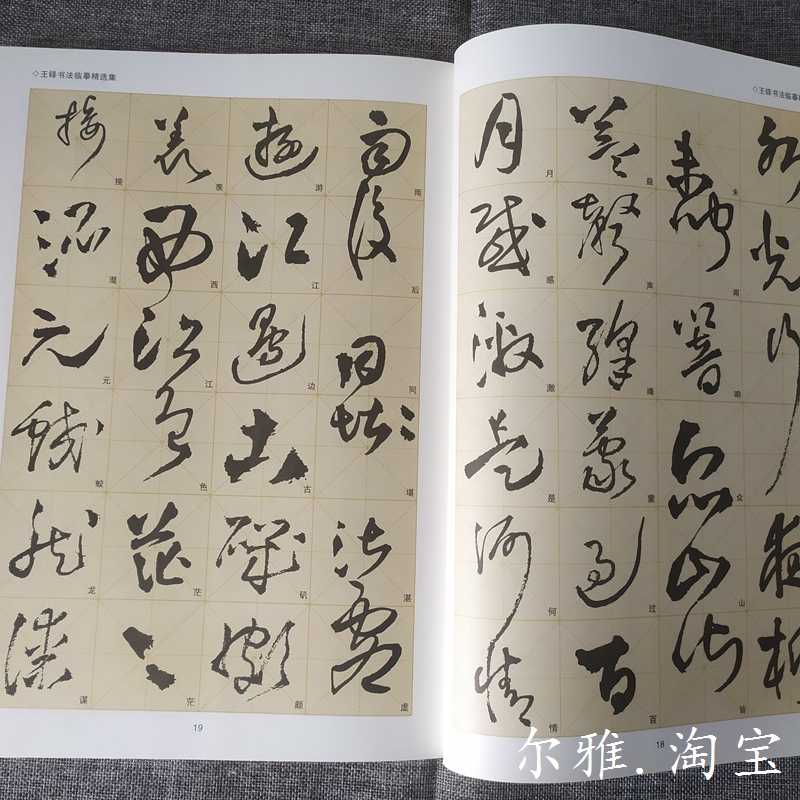 ◇王铎书法临摹
光
行
未
闻
响
众
山
益
声
蒙
过
百
月
感
激
是
何
情
18
◇王铎书法临摹精选集
雨
后
同
堪
湛
虚
游
江
边
古
矶
颇
西
江
色
茫
茫
接
混
元
蛟
龙
谋
19
尔雅.淘宝